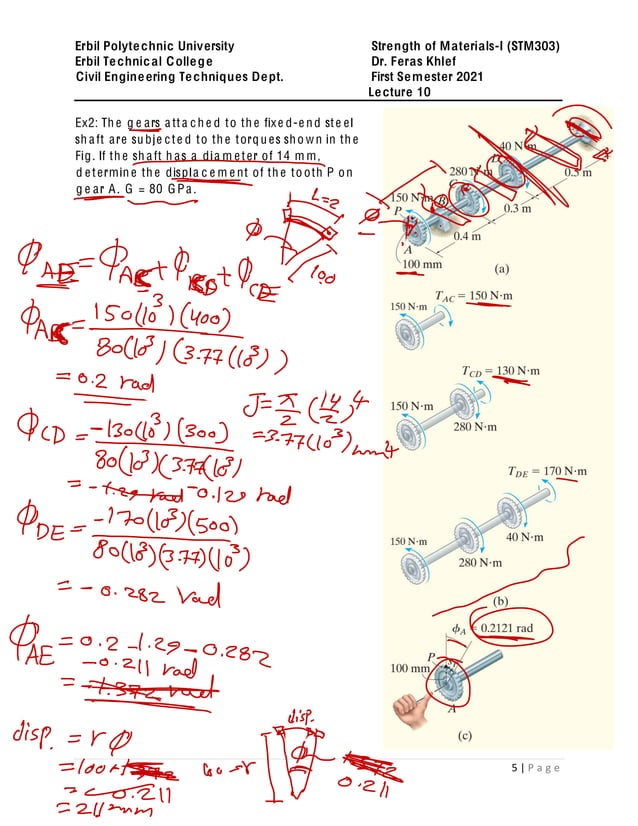 Erbil Polytechnic University
Strength of Materials-I (STM303)
Erbil Technical College
Dr. Feras Khlef
Civil Engineering Techniques Dept.
First Semester 2021
Lecture 10
Ex2: The gears attached to the fixed-end steel
shaft are subjected to the torques shown in the
Fig. If the shaft has a diameter of 14 mm,
determine the displacement of the tooth P on
gear A. G = 80 GPa.
40 N·m
280 N·m
150 N·m
P
A
100 mm
0.5 m
0.3 m
0.4 m
(a)
L=2
ϕ
100
ϕ
T_AC = 150 N·m
150 N·m
T_CD = 130 N·m
150 N·m
280 N·m
T_DE = 170 N·m
150 N·m
40 N·m
280 N·m
(b)
ϕ_A = 0.2121 rad
P
100 mm
A
(c)
ϕ_AC = 150(10³)(400)
80(10³)(3.77(10³))
= 0.2 rad
J = π/2 (14/2)⁴
= 3.77(10³) mm4
ϕ_CD = -130(10³)(300)
80(10³)(3.77(10³)
= -1.29 rad -0.120 rad
ϕ_DE = -170(10³)(500)
80(10³)(3.77)(10³)
= -0.282 rad
ϕ_AE = 0.2 -1.29 -0.282
-0.211 rad
= -1.372 rad
disp. = r ϕ
= 100 *
= 0.211
= 211 mm
disp.
ϕ
0.211
5 | Page